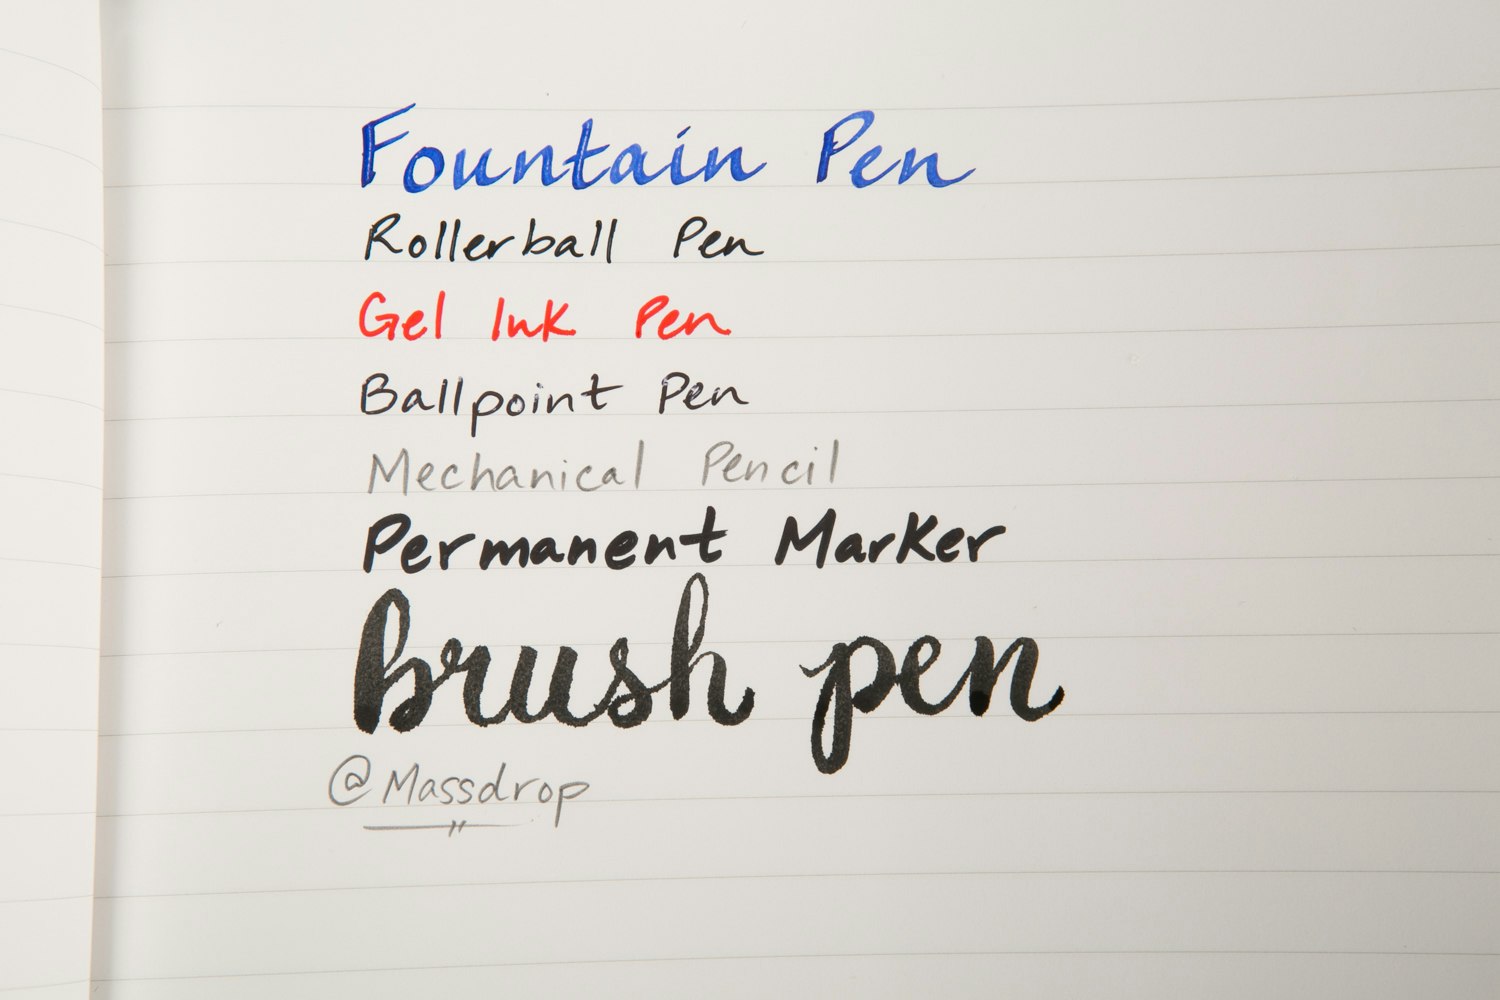 Fountain Pen
Rollerball Pen
Gel Ink Pen
Ballpoint Pen
Mechanical Pencil
Permanent Marker
brush pen
@Massdrop